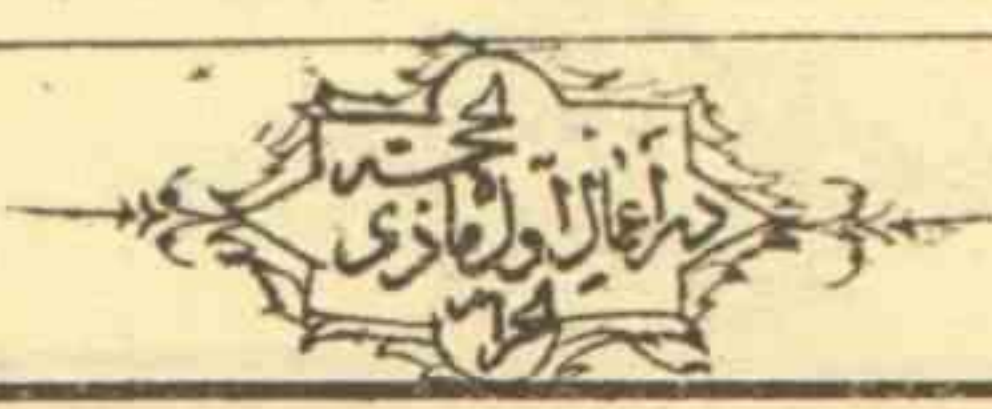 در اعمال اول ماه ذی حجه